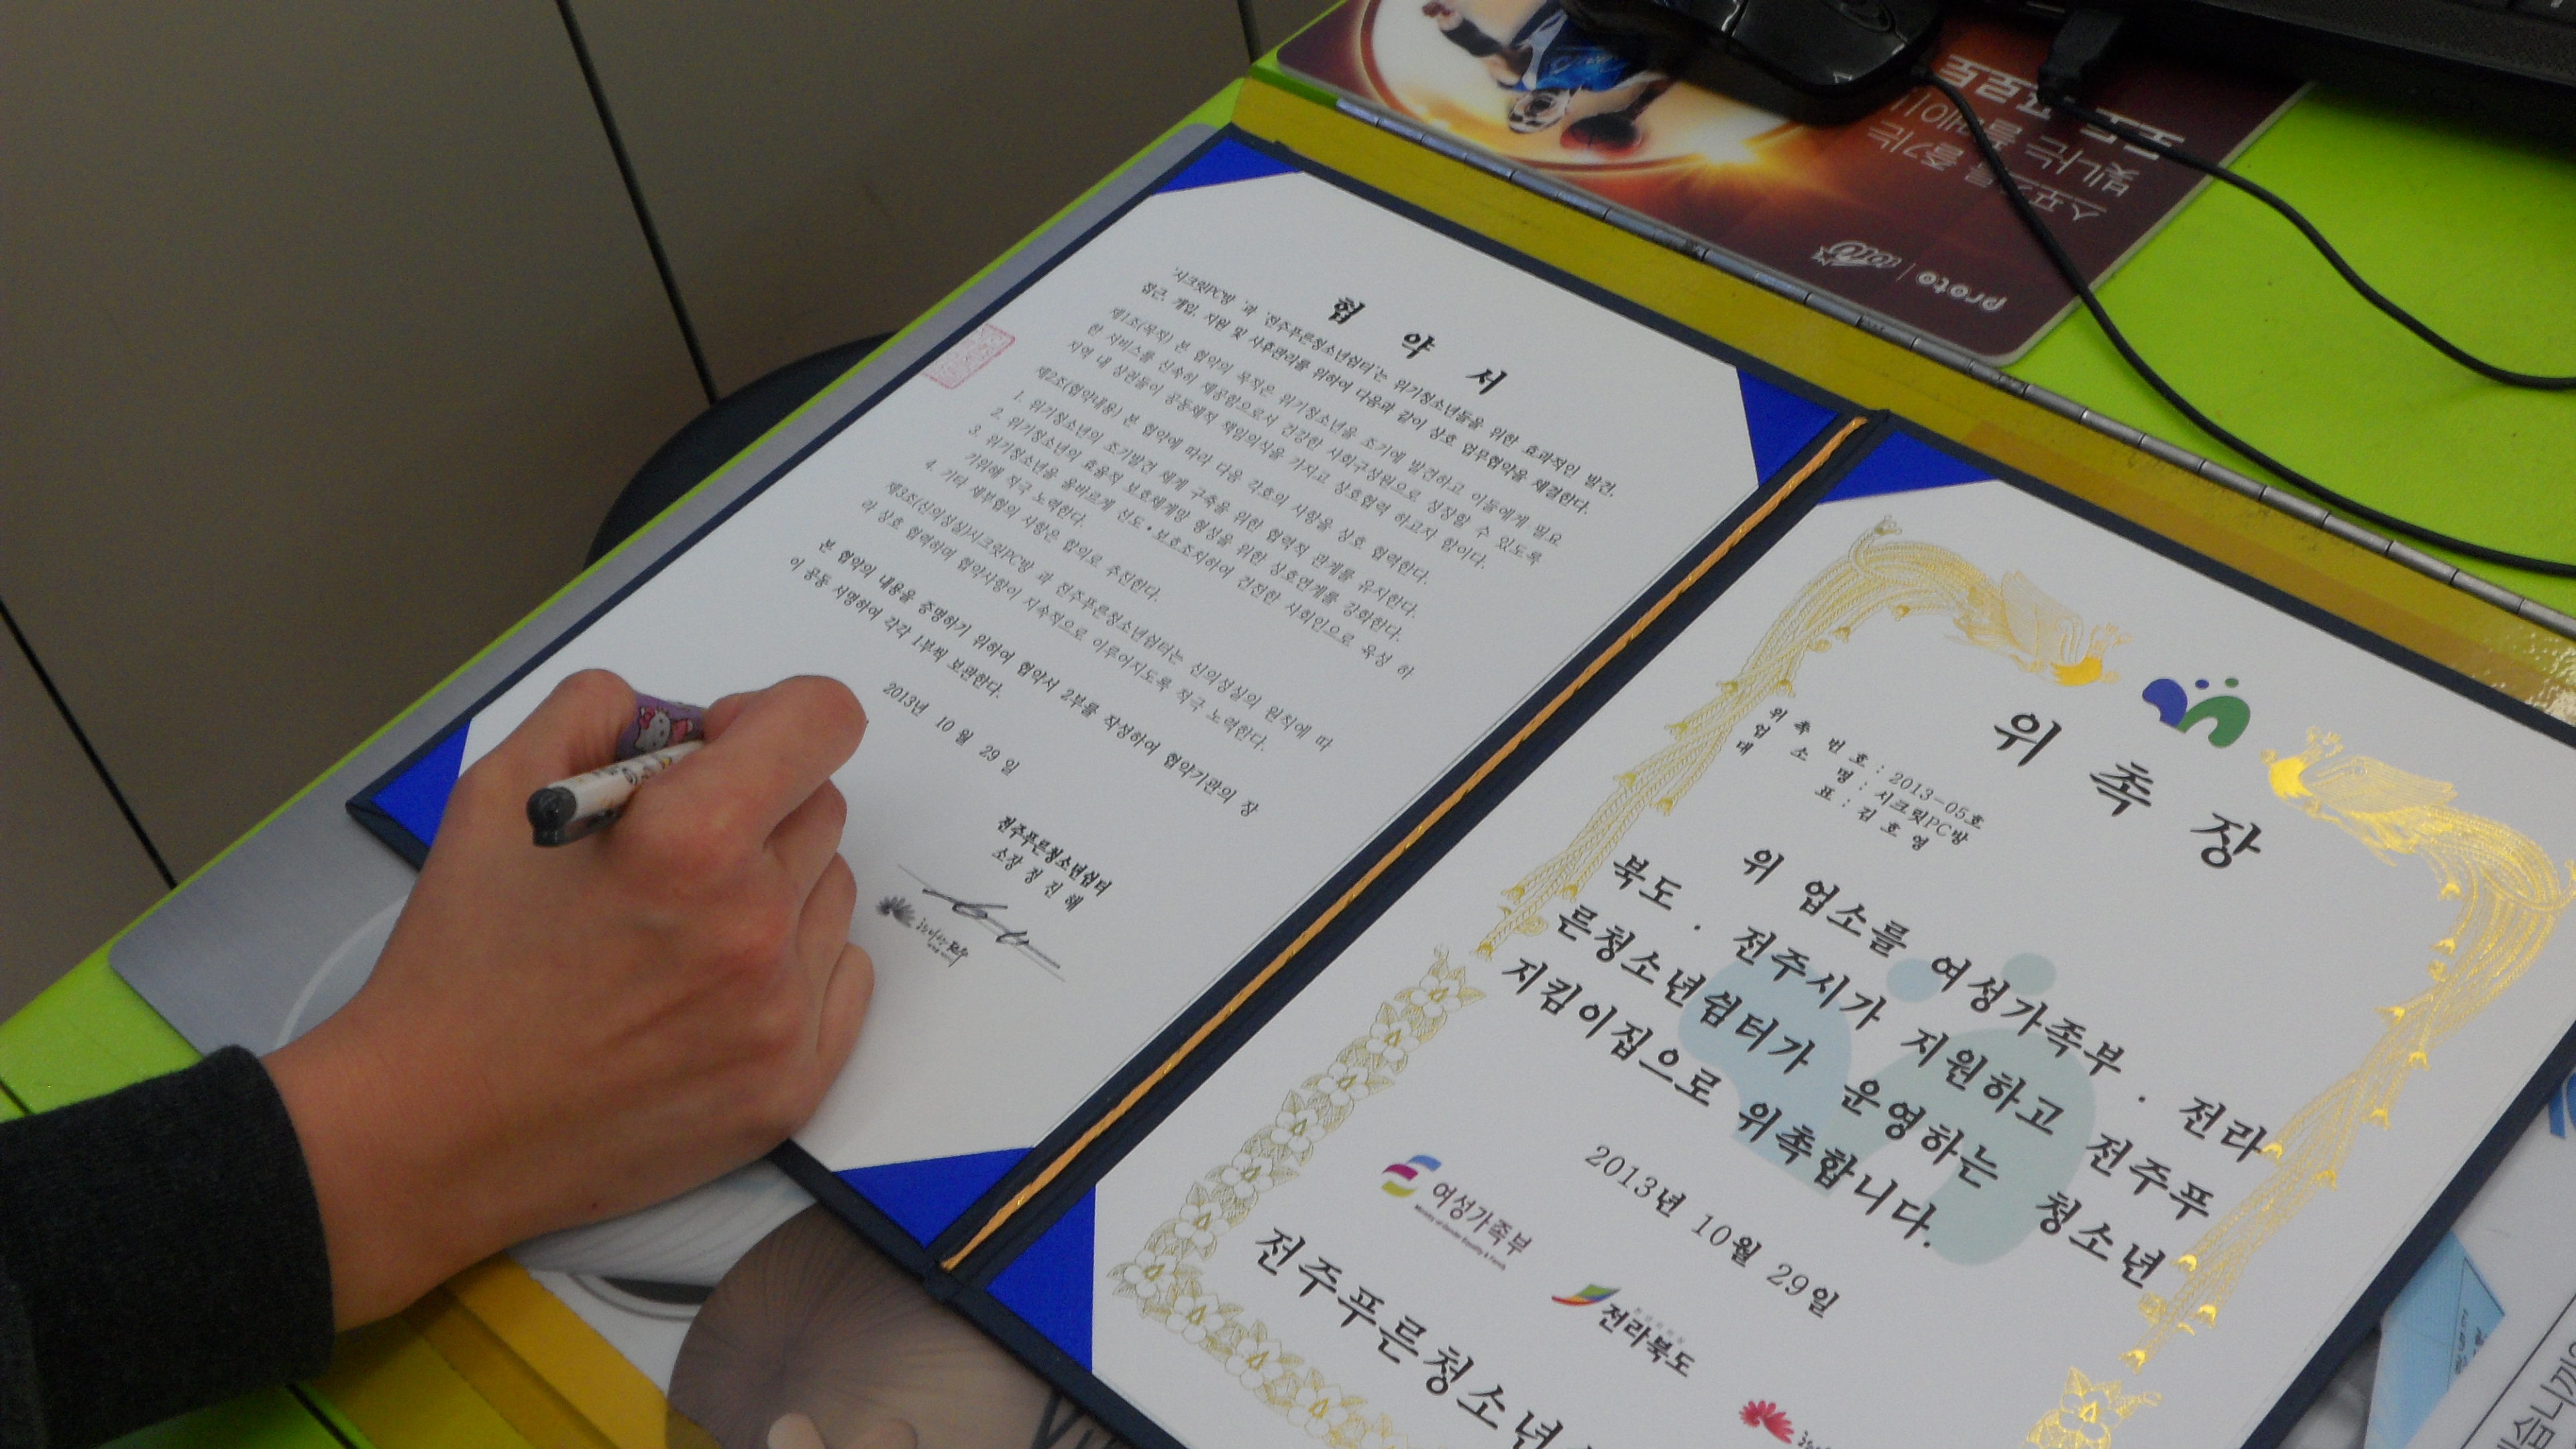 협 약 서
'시크릿PC방 '과 '전주푸른청소년쉼터'는 위기청소년들을 위한 효과적인 발견,
접근, 개입, 지원 및 사후관리를 위하여 다음과 같이 상호 업무협약을 체결한다.
제1조(목적) 본 협약의 목적은 위기청소년을 조기에 발견하고 이들에게 필요
한 서비스를 신속히 제공함으로서 건강한 사회구성원으로 성장할 수 있도록
지역 내 상권들이 공동체적 책임의식을 가지고 상호협력 하고자 함이다.
제2조(협약내용) 본 협약에 따라 다음 각호의 사항을 상호 협력한다.
1. 위기청소년의 조기발견 체계 구축을 위한 협력적 관계를 유지한다.
2. 위기청소년의 효율적 보호체계망 형성을 위한 상호연계를 강화한다.
3. 위기청소년을 올바르게 선도•보호조치하여 건전한 사회인으로 육성 하
기위해 적극 노력한다.
4. 기타 세부협의 사항은 합의로 추진한다.
제3조(신의성실)시크릿PC방 과 전주푸른청소년쉼터는 신의성실의 원칙에 따
라 상호 협력하며 협약사항이 지속적으로 이루어지도록 적극 노력한다.
본 협약의 내용을 증명하기 위하여 협약서 2부를 작성하여 협약기관의 장
이 공동 서명하여 각각 1부씩 보관한다.
2013년 10월 29일
전주푸른청소년쉼터
소장 정 진 해
위 촉 장
위 촉 번 호 : 2013-05호
업 소 명 : 시크릿PC방
대 표 : 김 호 영
위 업소를 여성가족부 · 전라
북도 · 전주시가 지원하고 전주푸
른청소년쉼터가 운영하는 청소년
지킴이집으로 위촉합니다.
2013년 10월 29일
여성가족부
Ministry of Gender Equality & Family
전라북도
전주푸른청소년
스포츠를 즐기는
빛나는 플레이
proto